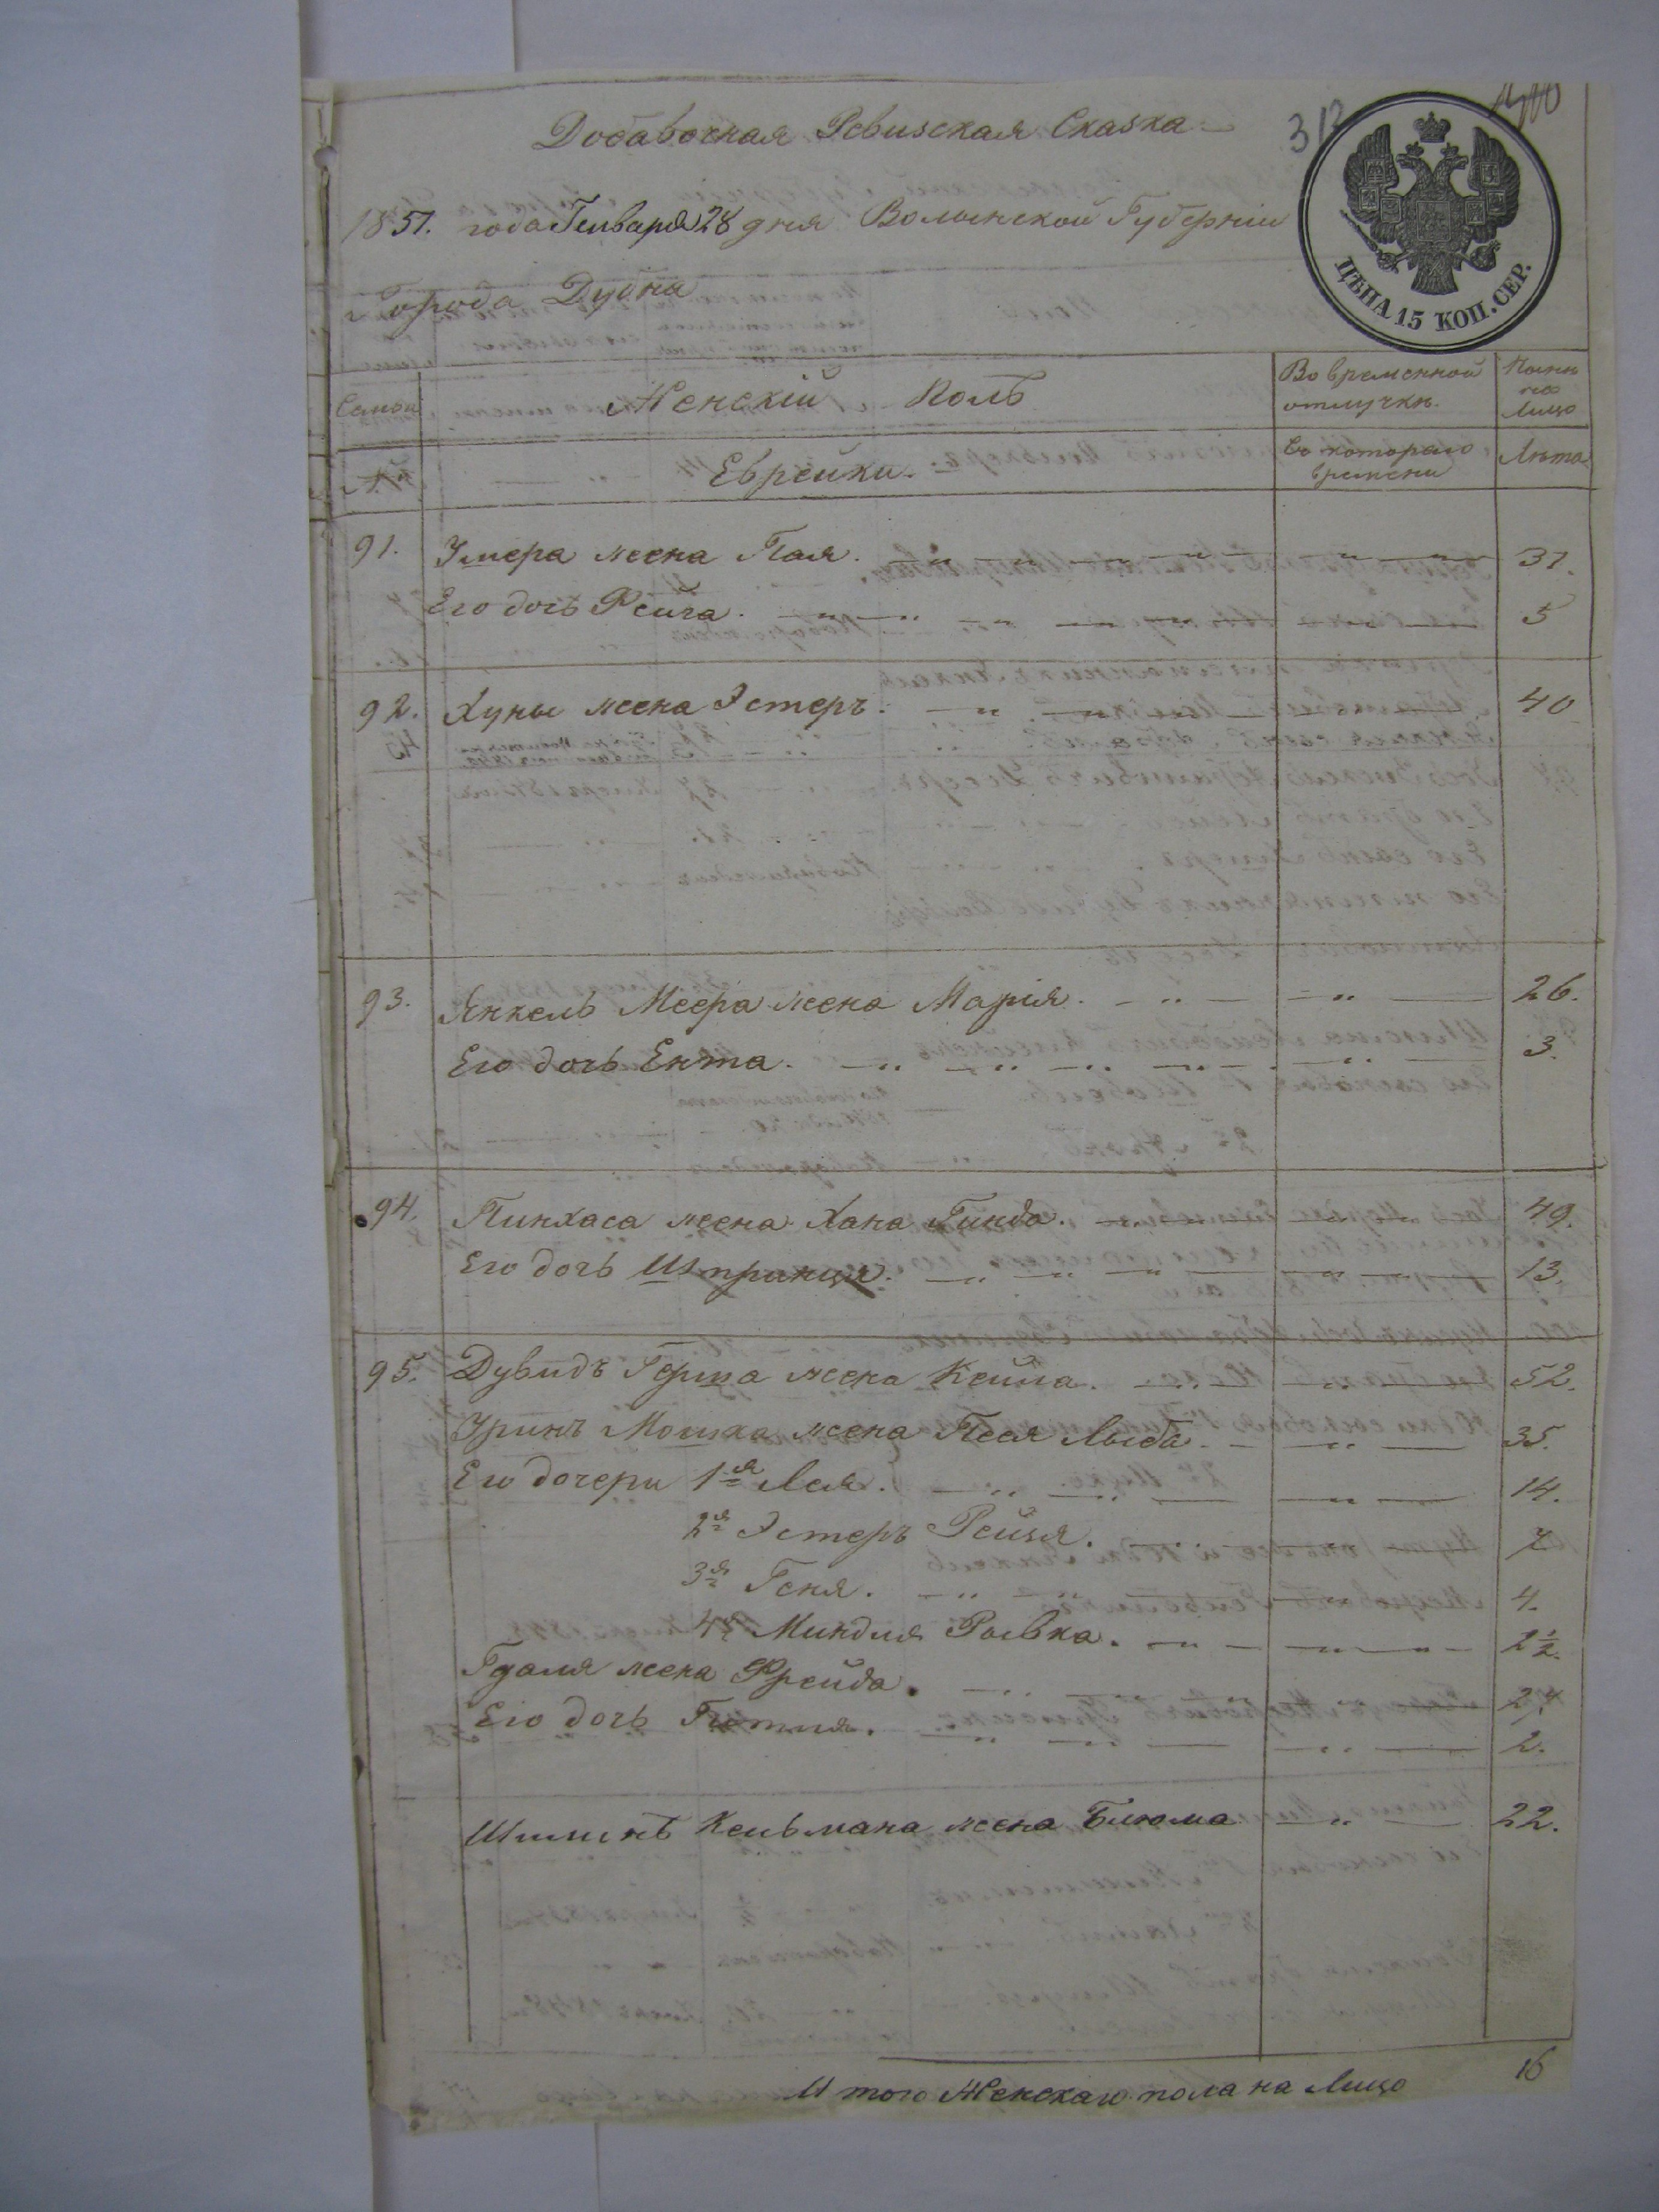 Добавочная Ревизская Сказка
312
1851. года Генваря 28 дня Волынской Губерніи
Города Дубна
ЦѢНА 15 КОП. СЕР.
Семьи
Женскій Полъ
Во временной отлучкѣ
Нынѣ на Лицо
№
Еврейки.
Съ котораго времени
Лѣта
91. Умера жена Пая. 31.
Его дочь Рейга. 5
92. Хуны жена Эстеръ. 40
93. Янкель Меера жена Марія. 26.
Его дочь Ента. 3.
94. Пинхаса жена Хана Гинда. 49.
Его дочь Штринця. 13.
95. Дувидъ Герша жена Кейла. 52.
Уринъ Мошка жена Песя Лыба. 35.
Его дочери 1я Лея. 14.
2я Эстеръ Рейзя. 7
3я Геня. 4.
4я Миндля Рывка. 2½.
Гдаля жена Фрейда. 27.
Его дочь Гитля. 2.
Кельмана жена Блюма 22.
Итого Женскаго пола на Лицо 16